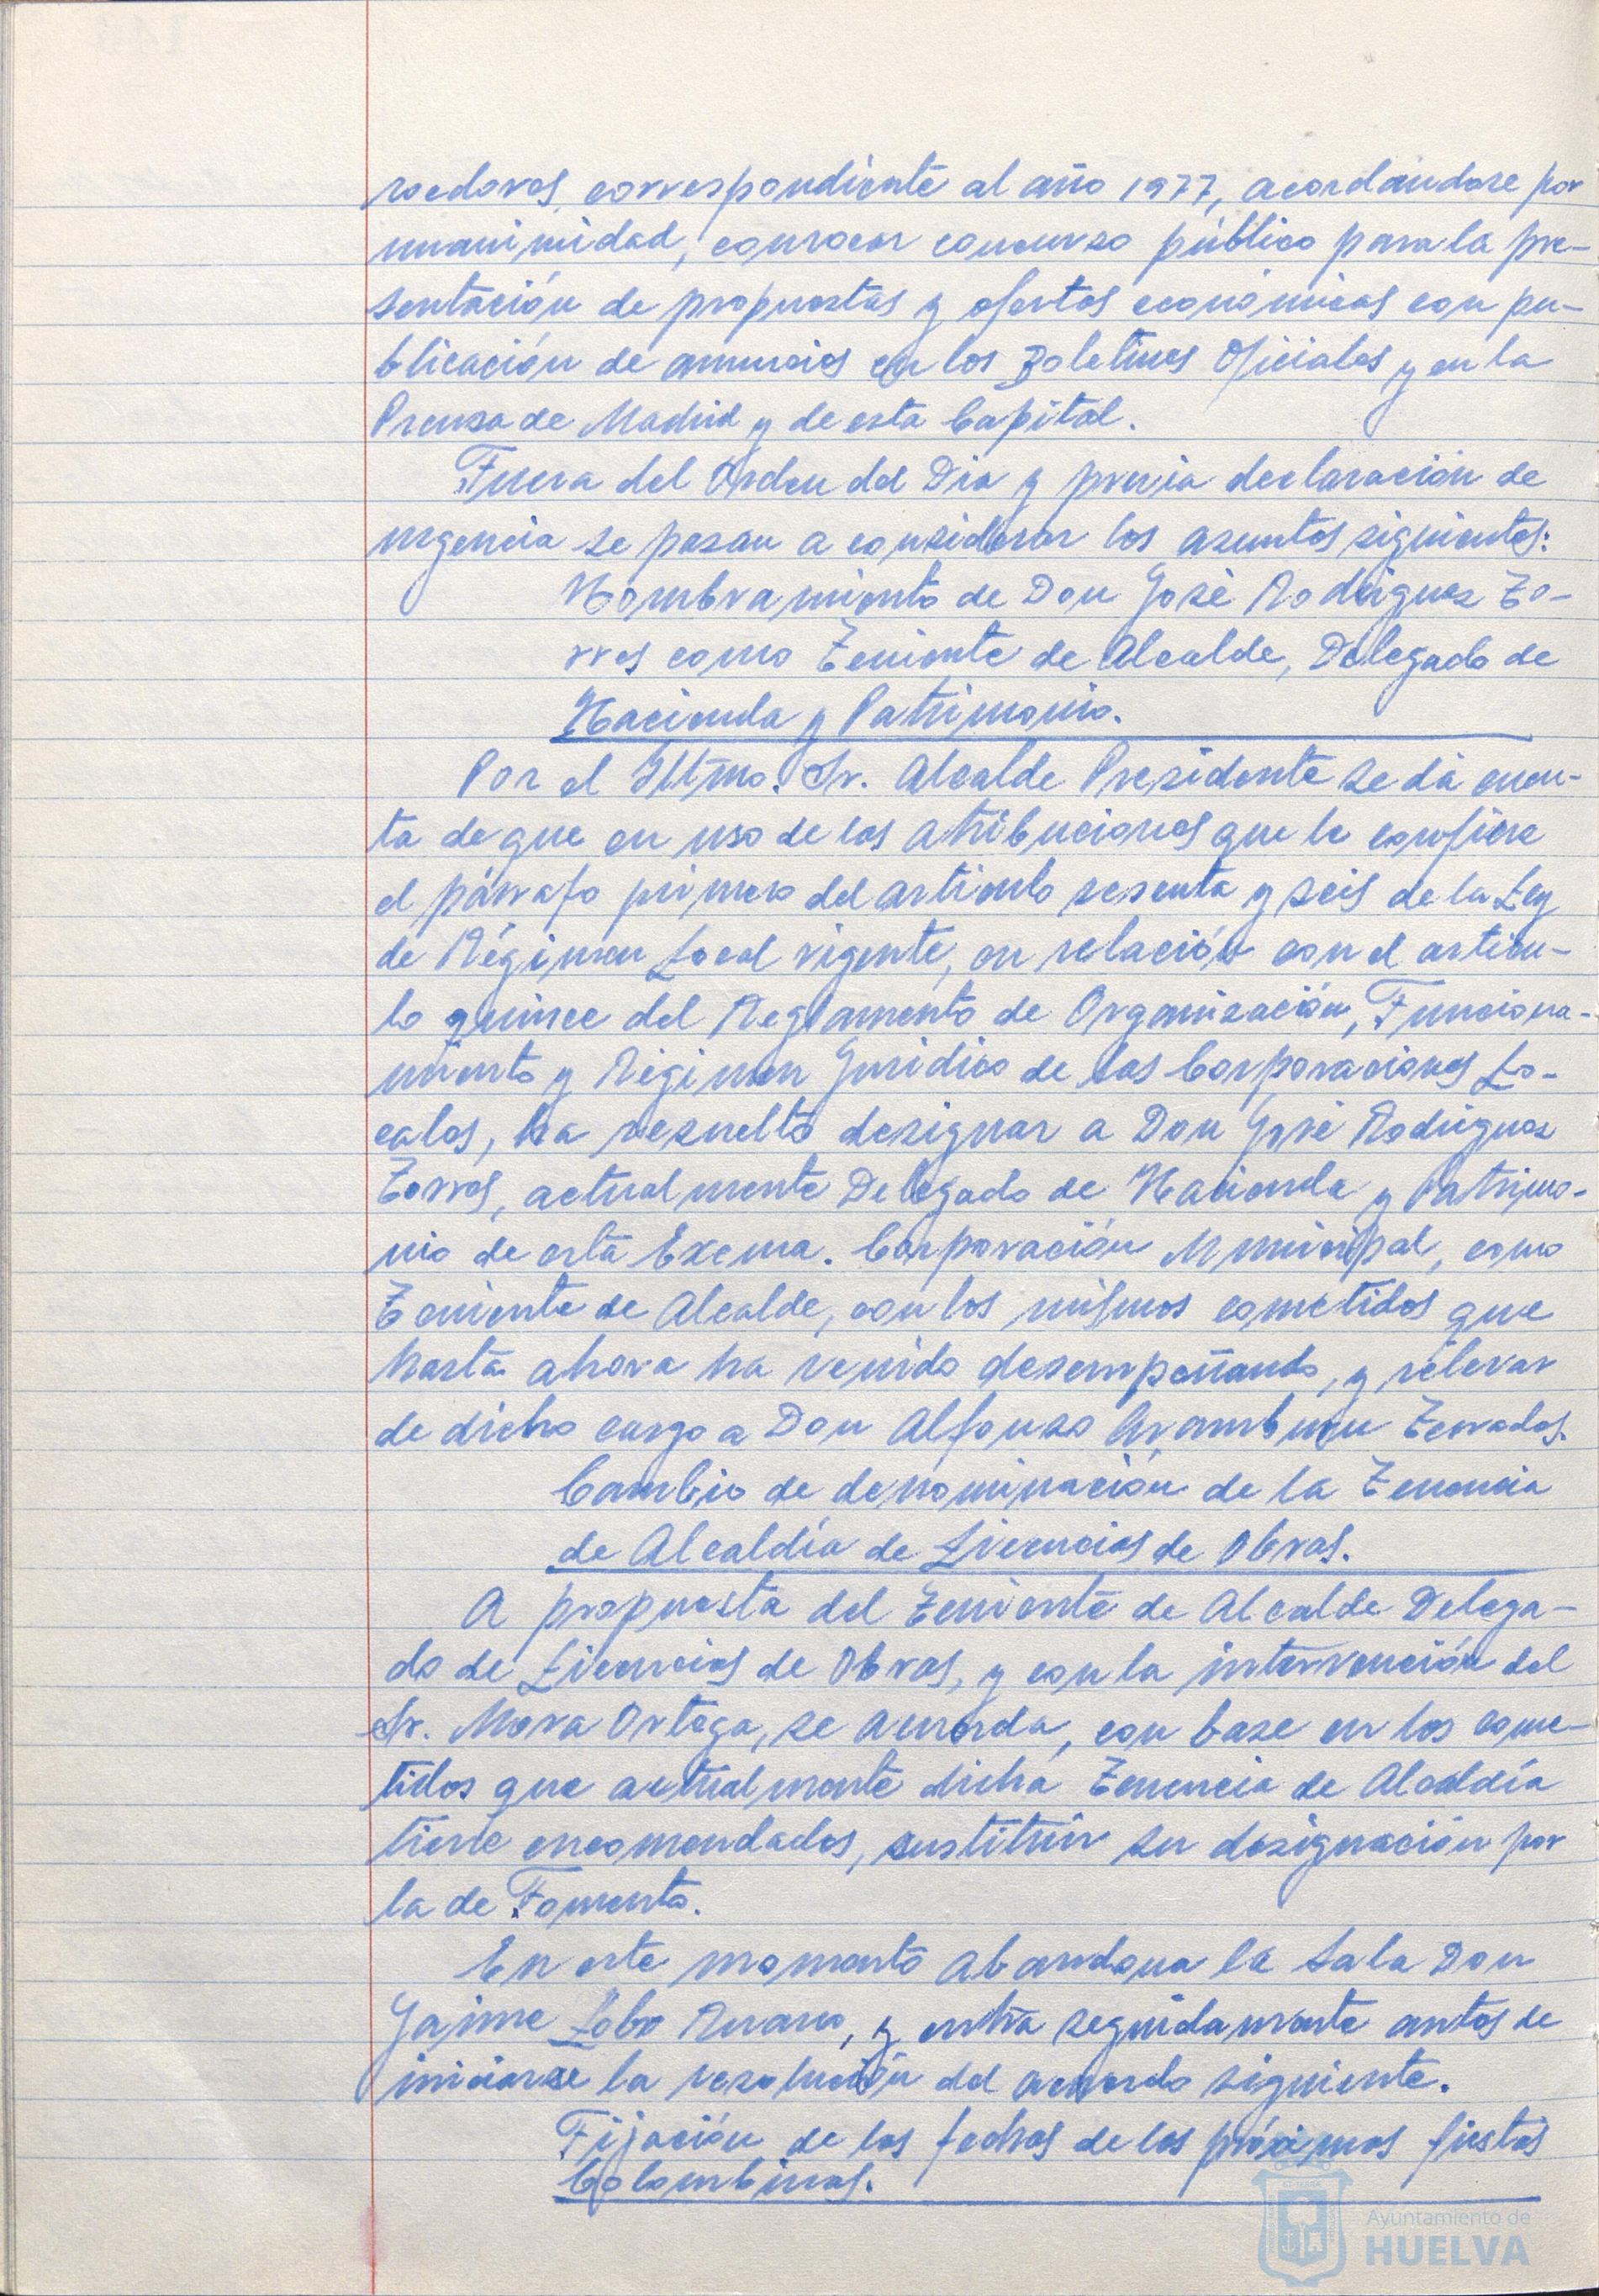 roedores, correspondiente al año 1977, acordándose por
unanimidad, convocar concurso público para la pre-
sentación de propuestas y ofertas económicas con pu-
blicación de anuncios en los Boletines Oficiales y en la
Prensa de Madrid y de esta Capital.
Fuera del Orden del Dia y previa declaración de
urgencia se pasan a considerar los asuntos siguientes:
Nombramiento de Don José Rodríguez To-
rres como Teniente de Alcalde, Delegado de
Hacienda y Patrimonio.
Por el Iltmo. Sr. Alcalde Presidente se dá cuen-
ta de que en uso de las atribuciones que le confiere
el párrafo primero del articulo sesenta y seis de la Ley
de Régimen Local vigente, en relación con el artícu-
lo quince del Reglamento de Organización, Funciona-
miento y Régimen Jurídico de las Corporaciones Lo-
cales, ha resuelto designar a Don José Rodríguez
Torres, actualmente Delegado de Hacienda y Patrimo-
nio de esta Excma. Corporación Municipal, como
Teniente de Alcalde, con los mismos cometidos que
hasta ahora ha venido desempeñando, y relevar
de dicho cargo a Don Alfonso Aramburu Terrades.
Cambio de denominación de la Tenencia
de Alcaldía de Licencias de Obras.
A propuesta del Teniente de Alcalde Delega-
do de Licencias de Obras, y con la intervención del
Sr. Mora Ortega, se acuerda, con base en los come-
tidos que actualmente dicha Tenencia de Alcaldía
tiene encomendados, sustituir su designación por
la de Fomento.
En este momento abandona la Sala Don
Jaime Lobo, y entra seguidamente antes de
iniciarse la resolución del acuerdo siguiente.
Fijación de las fechas de las próximas fiestas
Colombinas.
Ayuntamiento de
HUELVA